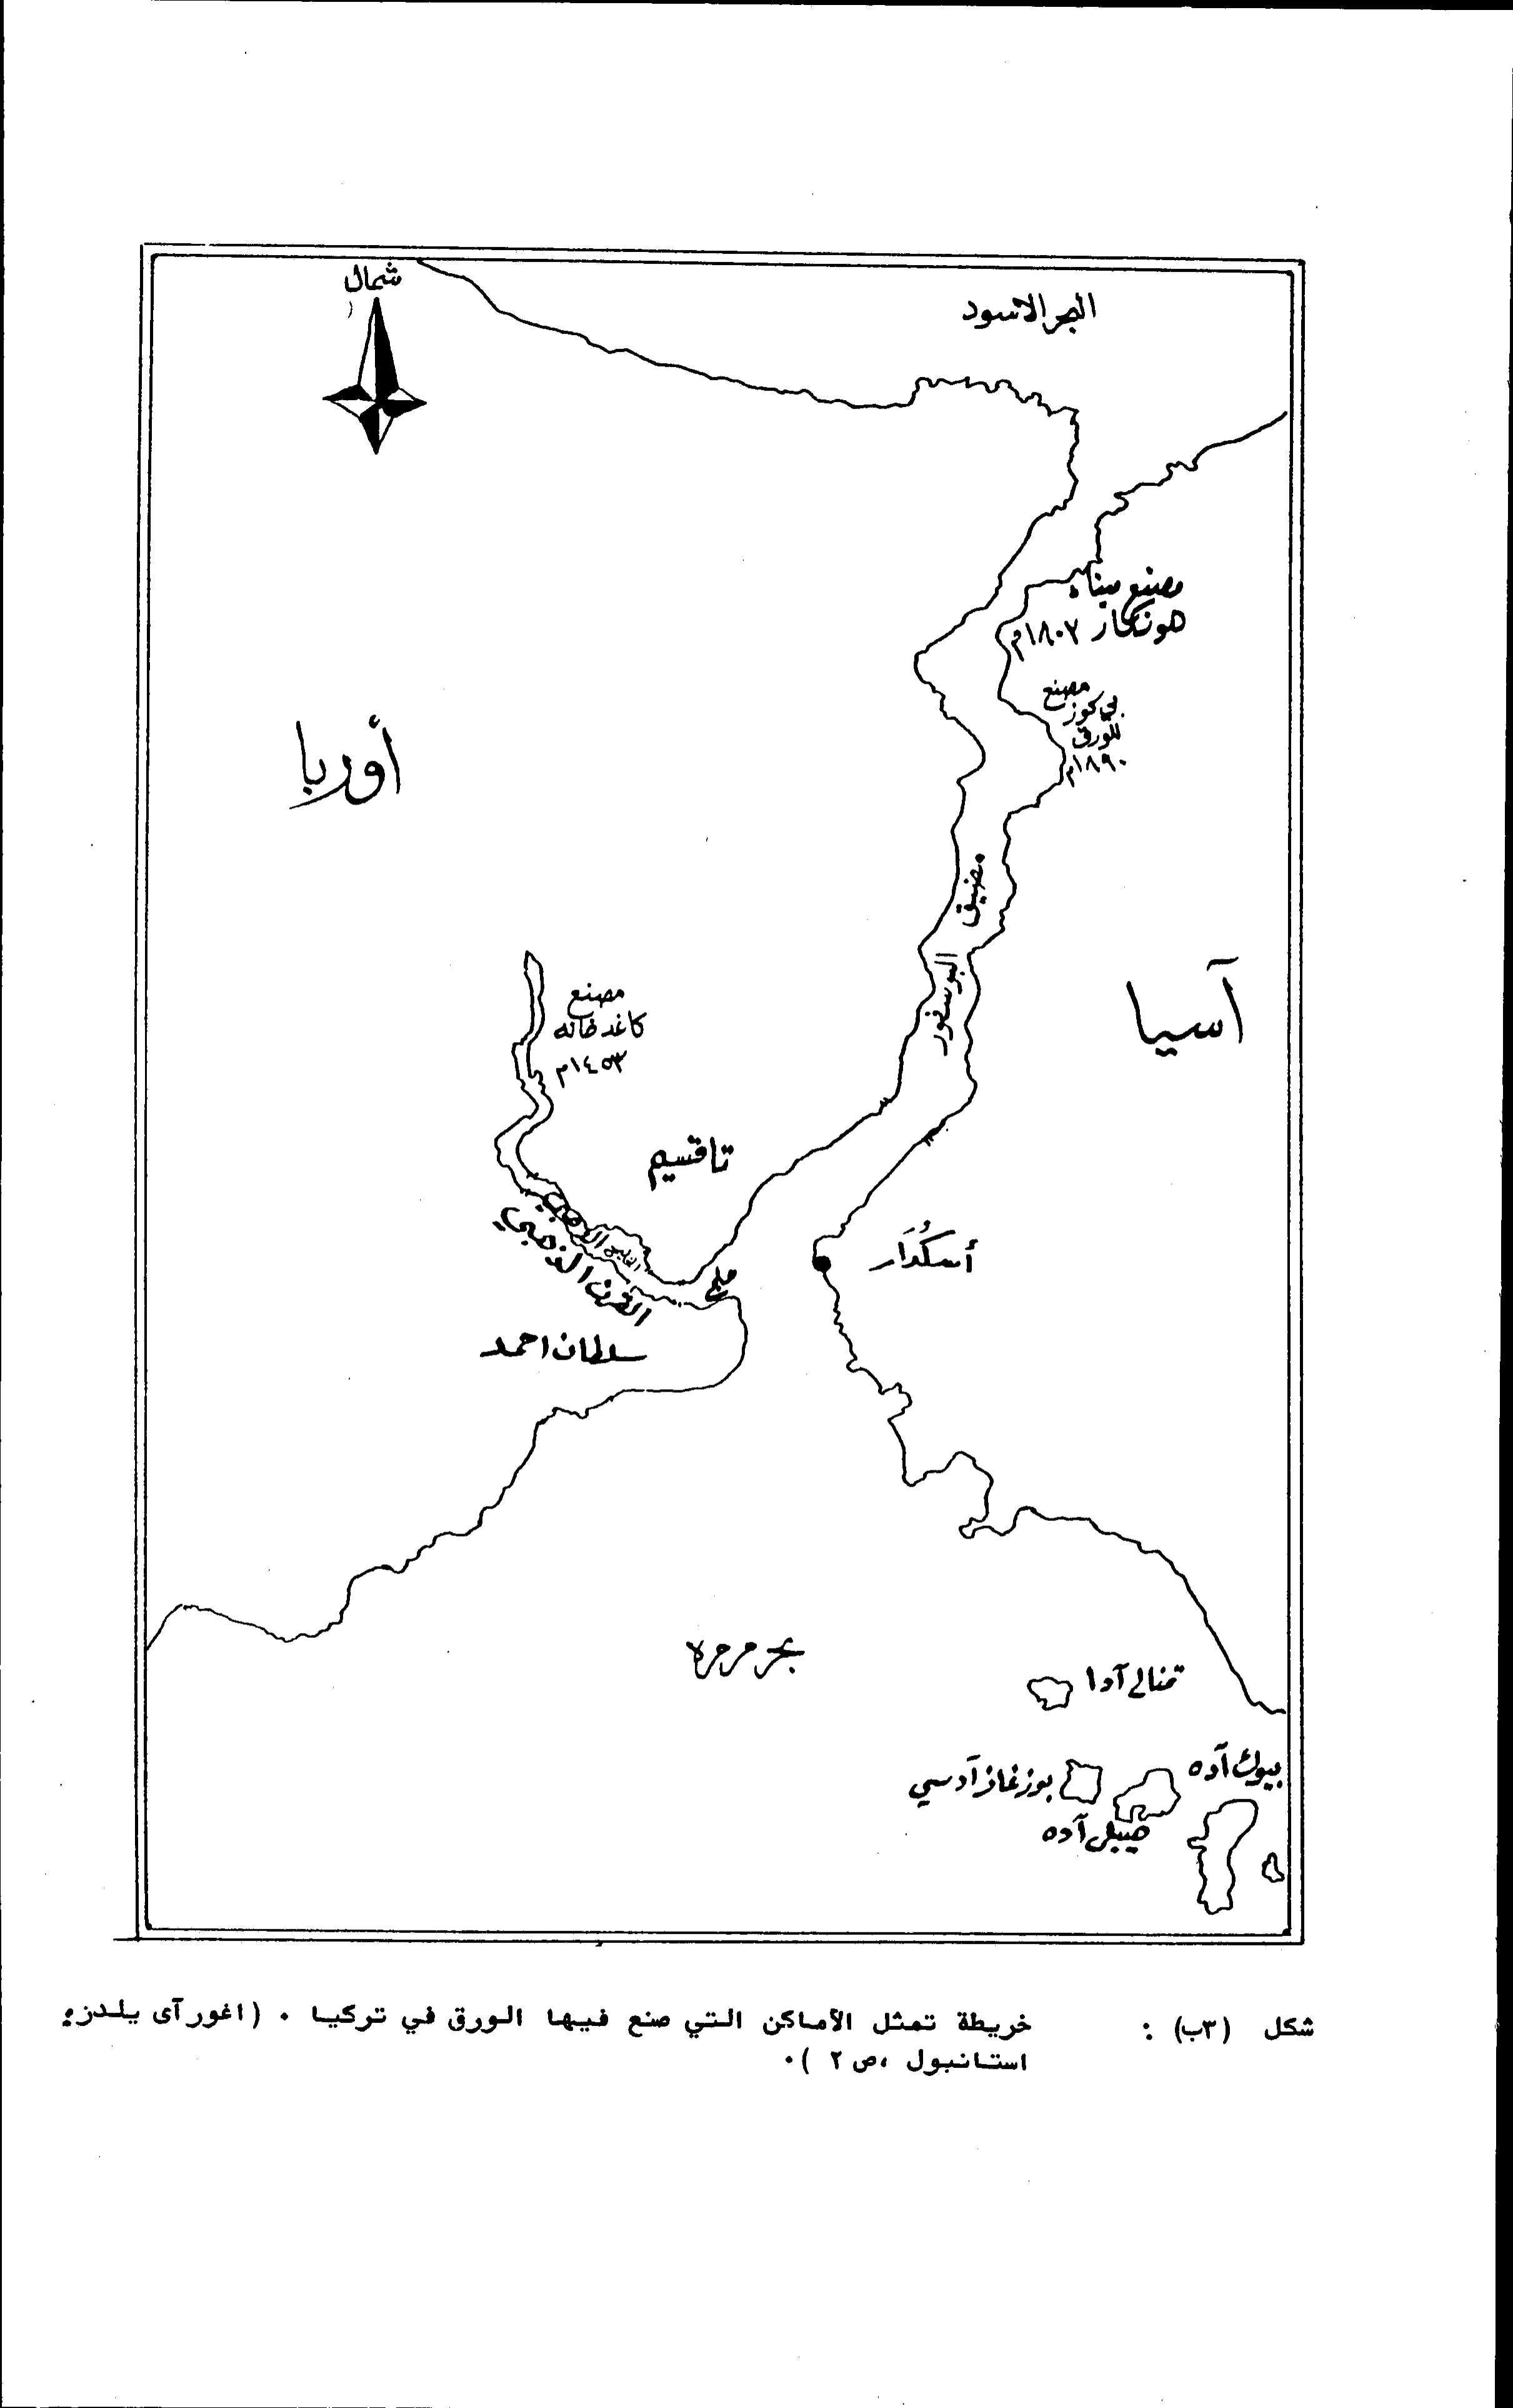 شمال
البحر الاسود
مصنع ميناء
هونكار ١٨٠٧م
مصنع
بي كوز
للورق
١٨٩٠م
أوربا
مضيق
البوسفور
آسيا
مصنع
كاغد خانه
١٤٥٣م
تاقسيم
أسكُدَار
القرن الذهبي
سلطان احمد
بحر مرمرة
قنالي آدا
بيوك آده
بورغاز آدسي
هيبلي آده
شكل (٣ب) : خريطة تمثل الأماكن التي صنع فيها الورق في تركيا . (اغور آى يلدز،
استانبول ،ص ٢ ).